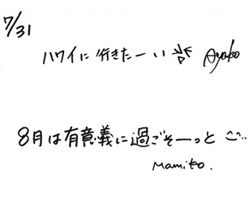 7/31
ハワイに行きたーい Ayako
8月は有意義に過ごそーっと
Mamiko.